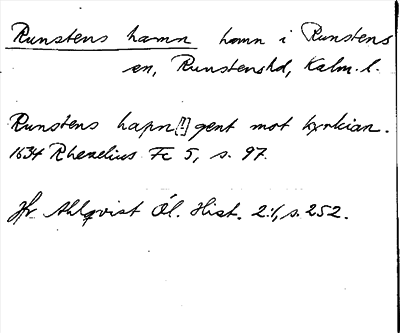 Runstens hamn hamn i Runstens
sn, Runstens hd, Kalm. l.
Runstens hapn[!] gent mot kyrkian.
1634 Rhezelius Fc 5, s. 97.
Jfr Ahlqvist Öl. Hist. 2:1, s. 252.